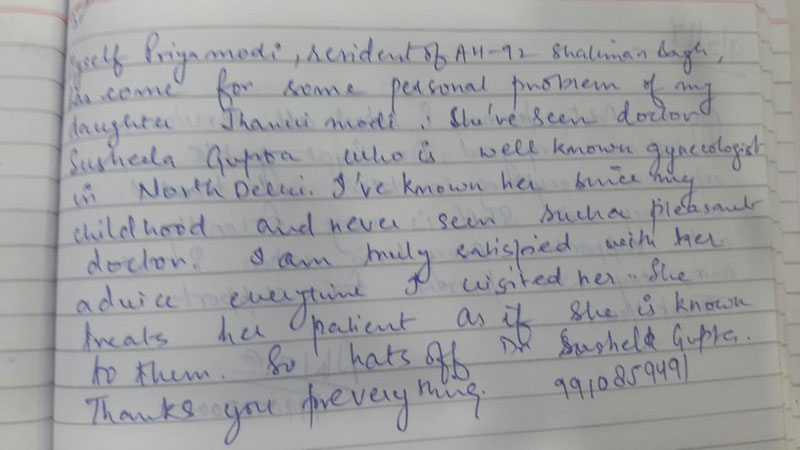 myself Priya modi, resident of AH-92 Shalimar Bagh,
has come for some personal problem of my
daughter Thanvi modi. She've seen doctor
Susheela Gupta who is well known gynecologist
in North Delhi. I've known her since my
childhood and never seen such a pleasant
doctor. I am truly satisfied with her
advice everytime I visited her. She
treats her patient as if she is known
to them. So hats off Dr Sushela Gupta.
Thanks you for everything. 9910859491